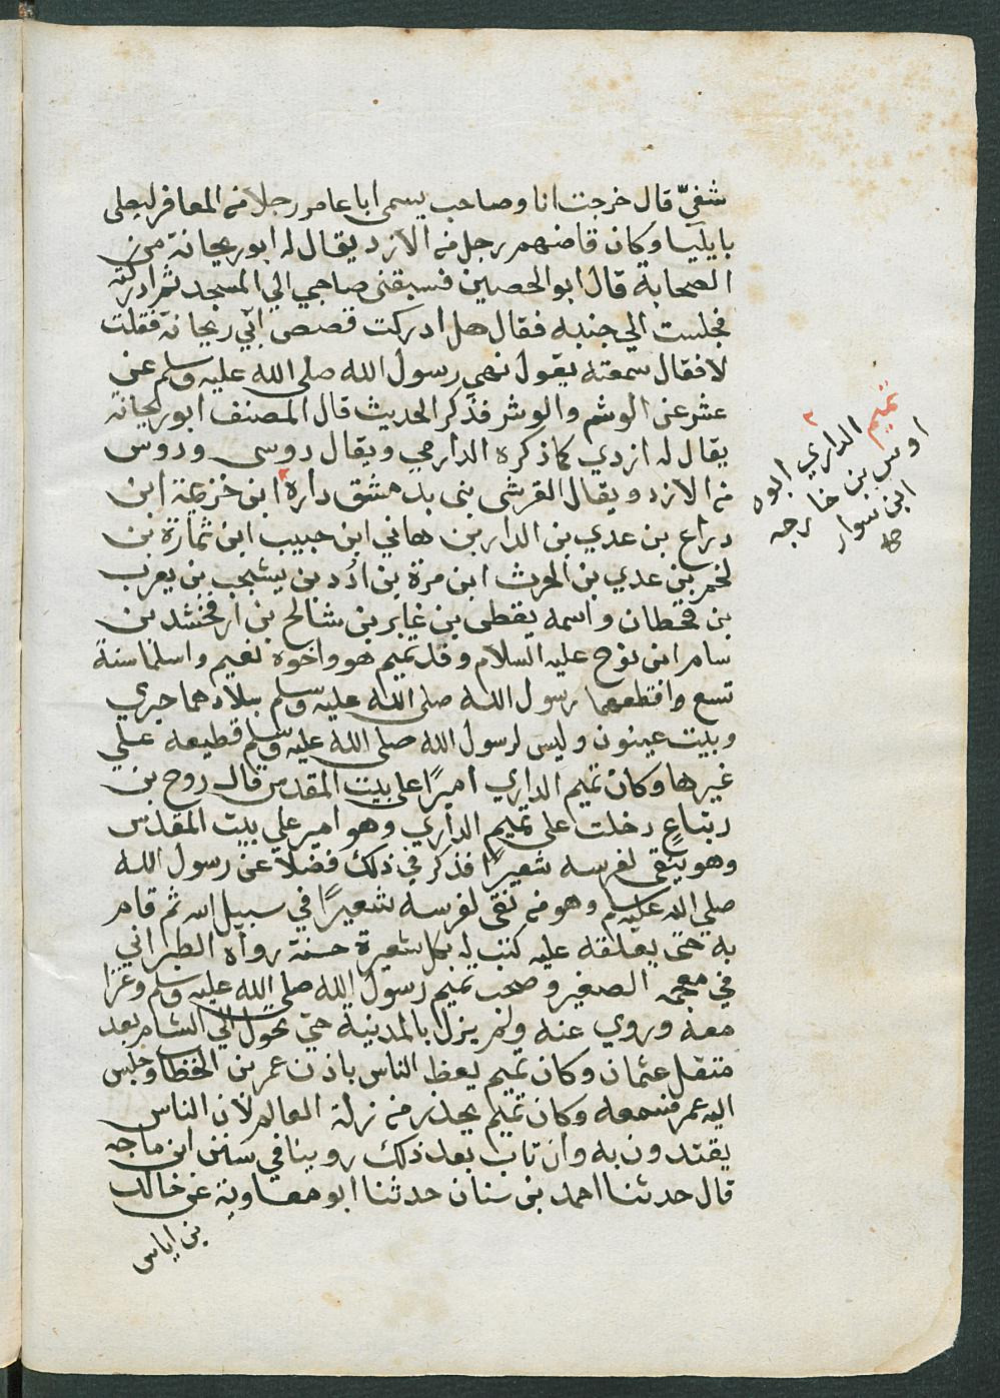 شفيّ قال خرجت انا وصاحب يسمى ابا عامر رجلا من المعافر ليصلي
بايليا وكان قاضهم رجل من الازد يقال له ابو ريحانة من
الصحابة قال ابو الحصين فسبقني صاحبي الي المسجد ثم ادركته
فجلست الي جنبه فقال هل ادركت قصص ابي ريحانة فقلت
لا فقال سمعته يقول نهي رسول الله صلى الله عليه وسلم عن
عشر عن الوشم والوشر فذكر الحديث قال المصنف ابو ريحانة
يقال له ازدي كما ذكره الدارمي ويقال دوسى ودوس
من الازد ويقال القرشى بنى بدمشق داره ابن خزيمة ابن
دراع بن عدي بن الدار بن هاني ابن حبيب ابن ثمارة بن
لخم بن عدي بن الحرث ابن مرة بن ادد بن يشجب بن يعرب
بن قحطان واسمه يقطى بن غابر بن شالخ بن ارفخشد بن
سامر ابن نوح عليه السلام وقد تميم هو واخوه نعيم واسلما سنة
تسع واقطعهما رسول الله صلى الله عليه وسلم ببلادهما جبري
وبيت عينون وليس لرسول الله صلى الله عليه وسلم قطيعه علي
غيرها وكان تميم الداري اميرًا على بيت المقدس قال روح بن
زنباعٍ دخلت على تميم الداري وهو امير علي بيت المقدس
وهو ينقى لفرسه شعيرًا فذكر في ذلك فضلا عن رسول الله
صلي الله عليه وسلم وهو من نقى لفرسه شعيرًا في سبيل الله ثم قام
به حتى يعلقه عليه كتب له بكل شعيرة حسنة رواه الطبراني
في معجمه الصغير وصحب تميم رسول الله صلى الله عليه وسلم وغزا
معه وروي عنه ولم يزل بالمدينة حتى تحول الي الشام بعد
متقل عثمان وكان تميم يعظ الناس باذن عمر بن الخطاب وجلس
اليه عمر فسمعه وكان تميم يحذر من زلة العالم لان الناس
يقتدون به وان تاب بعد ذلك روينا في سنن ابن ماجه
قال حدثنا احمد بن سنان حدثنا ابو معاوية عن خالد
بن اياس
تميم
الداري ابوه
اوس بن خارجه
ابن سوار